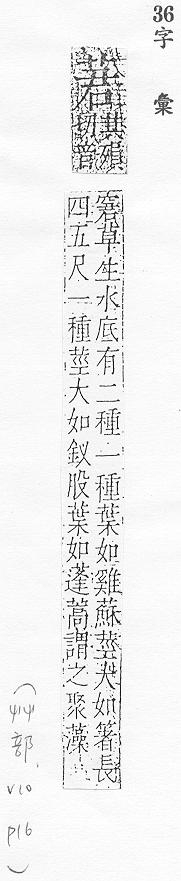 36 字彙
莙
其殞
切音
窘草生水底有二種一種葉如雞蘇莖大如箸長
四五尺一種莖大如釵股葉如蓬蒿謂之聚藻
(艸部 v10 p16)